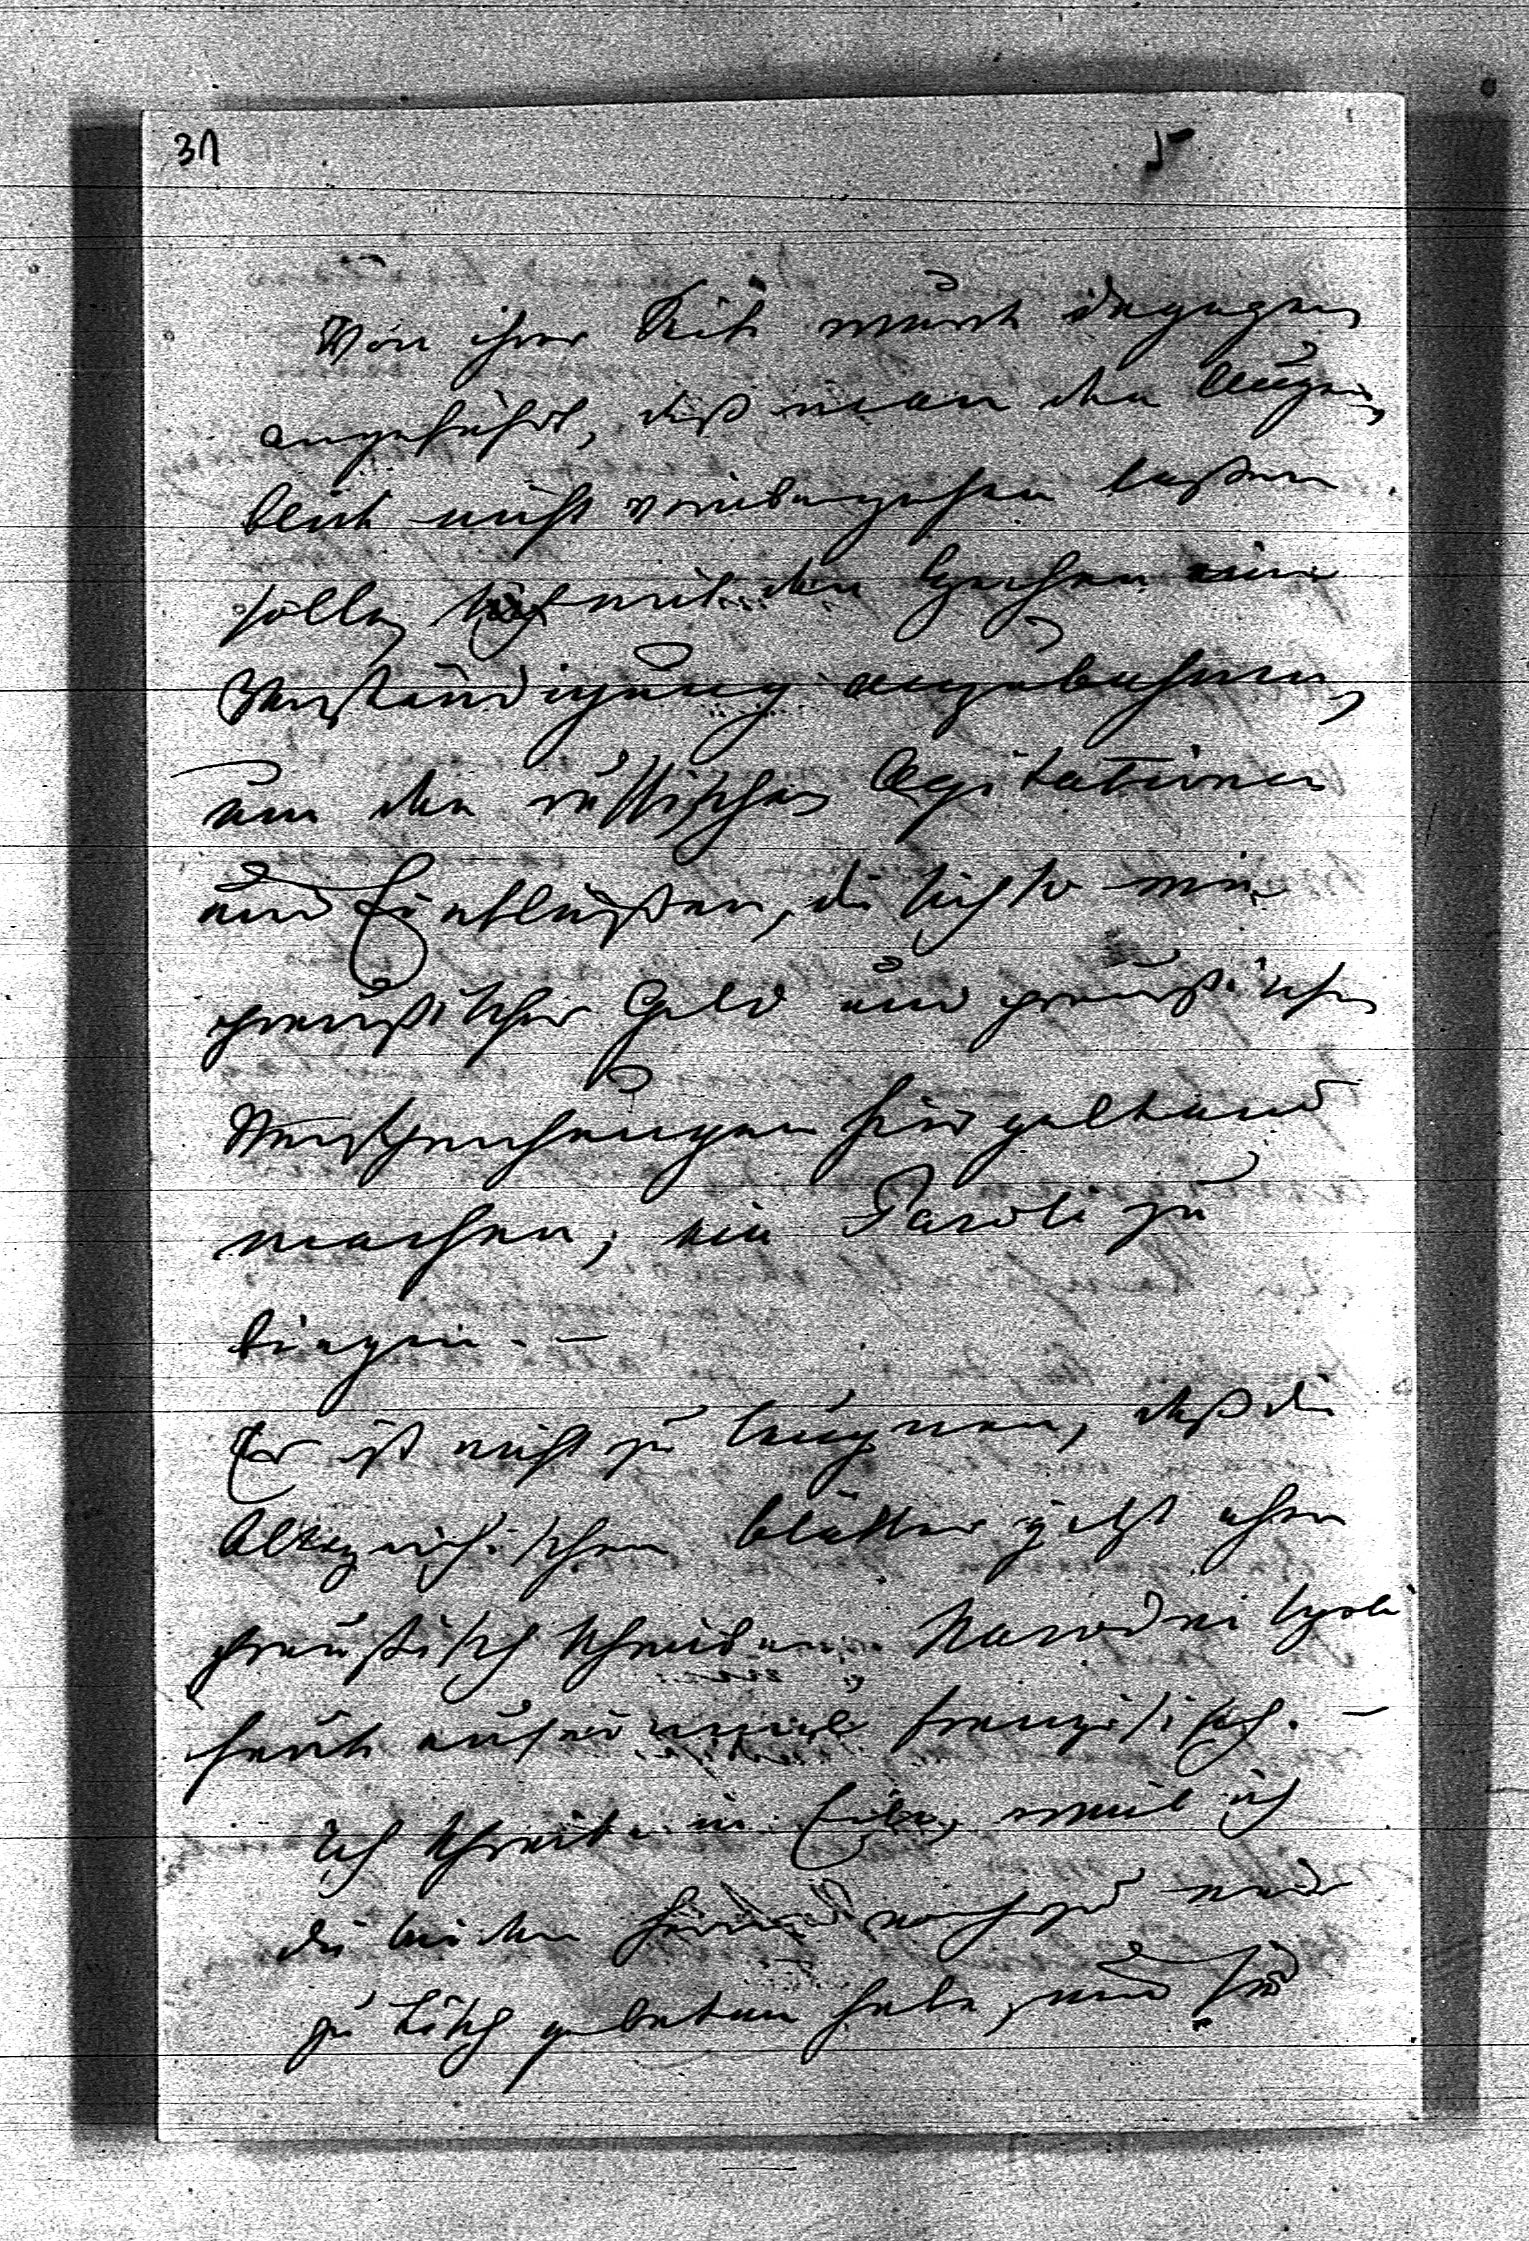 31
5
Von ihrer Seite wurde dagegen
angeführt, daß man den Augen
blick nicht vorübergehen lassen
solle, mit den Czechen eine
Verständigung anzubahnen,
um den russischen Agitationen
und Einflüßen, die sich so wie
preußisches Geld und preußische
Versprechungen hier geltend
machen, ein Paroli zu
biegen. —
Es ist nicht zu leugnen, daß die
Altczechischen Blätter jetzt eher
preußisch schreiben. Narodni listi
heute auf einmal französisch. —
Ich schreibe in Eile, weil ich
die beiden Herrn
zu Tisch gebeten habe, und sie